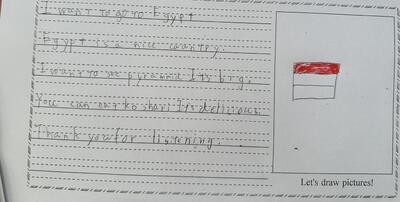 I want to go to Egypt
Egypt is a nice country.
I want to see pyramid It's big.
You can eat koshari It's delicious.
Thank you for listening.
Let's draw pictures!